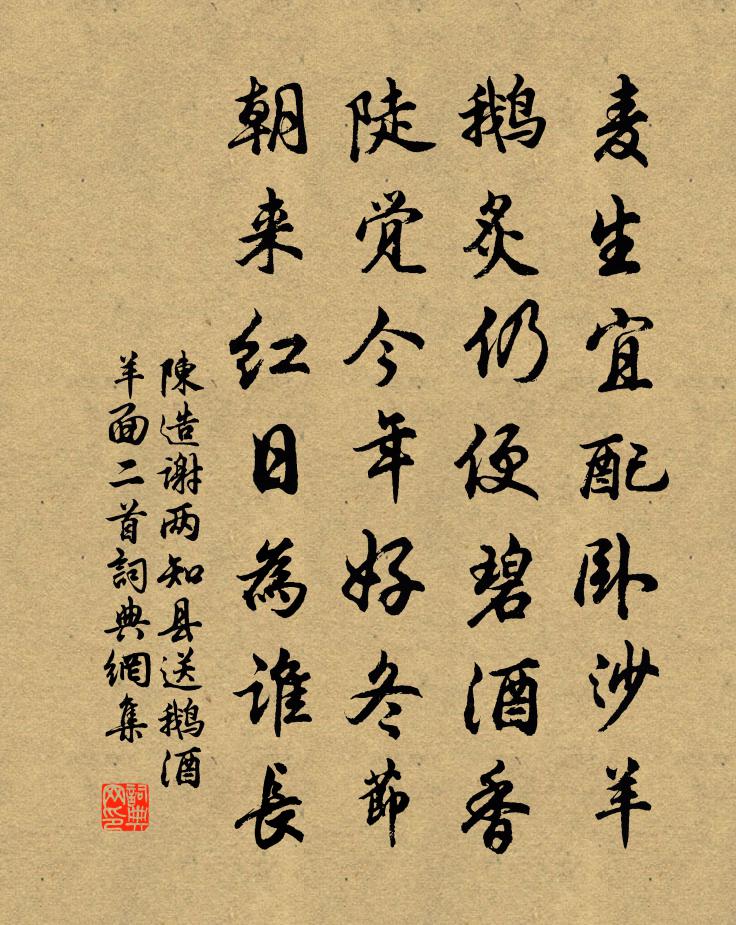 麦生宜配卧沙羊
鹅炙仍便碧酒香
陡觉今年好冬節
朝来红日為谁長
陳造谢两知县送鹅酒
羊面二首詞典網集
詞典网印